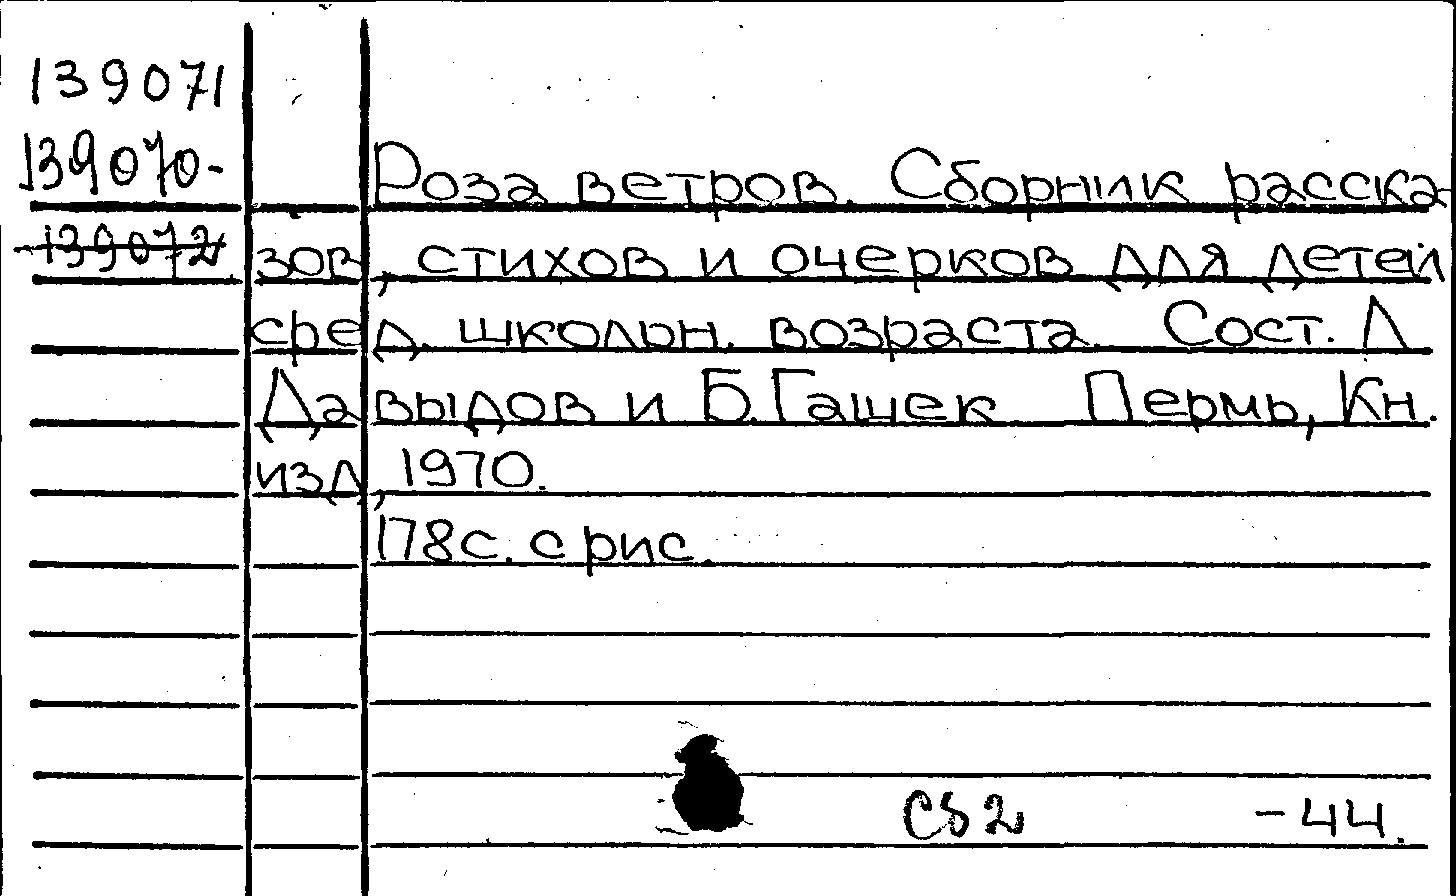 139071
139070-
139072
Роза ветров. Сборник расска-
зов, стихов и очерков для детей
сред. школьн. возраста. Сост. Л
Давыдов и Б.Гашек Пермь, Кн.
изд, 1970.
178с. с рис.
Сб2 -44.